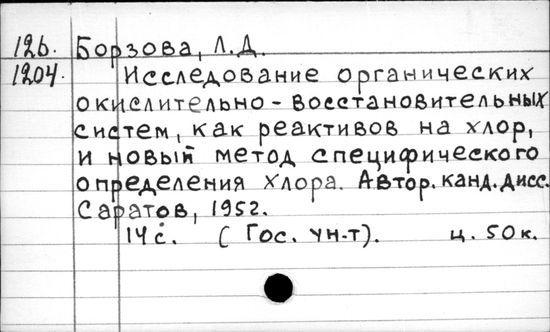 126. Борзова, Л.Д.
1204. Исследование органических
окислительно-восстановительных
систем, как реактивов на хлор,
и новый метод специфического
определения хлора. Автор. канд. дисс.
Саратов, 1952.
14 с. (Гос. ун-т). ц. 50 к.